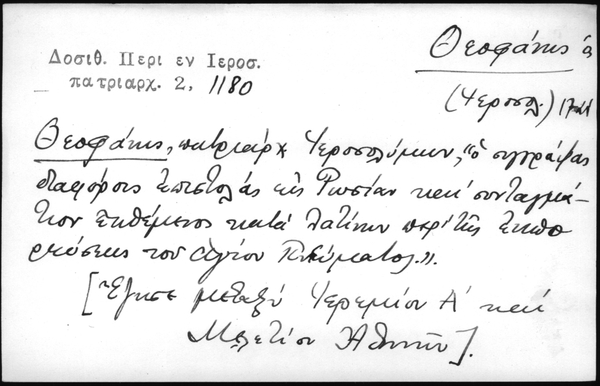 Δοσιθ. Περι εν Ιεροσ.
πατριαρχ. 2, 1180
Θεοφάνης
(Ἱεροσολ.)
Θεοφάνης, πατριάρχ Ἱεροσολύμων, "ὁ συγγράψας
διαφόρους ἐπιστολὰς εἰς Ρωσίαν καὶ συνταγμά-
τιον ἐκθέμενος κατὰ Λατίνων περὶ τῆς ἐκπο
ρεύσεως τοῦ Ἁγίου Πνεύματος".
[Ἔζησε μεταξὺ Ἱερεμίου Α' καὶ
Μελετίου Ἀθηνῶν].